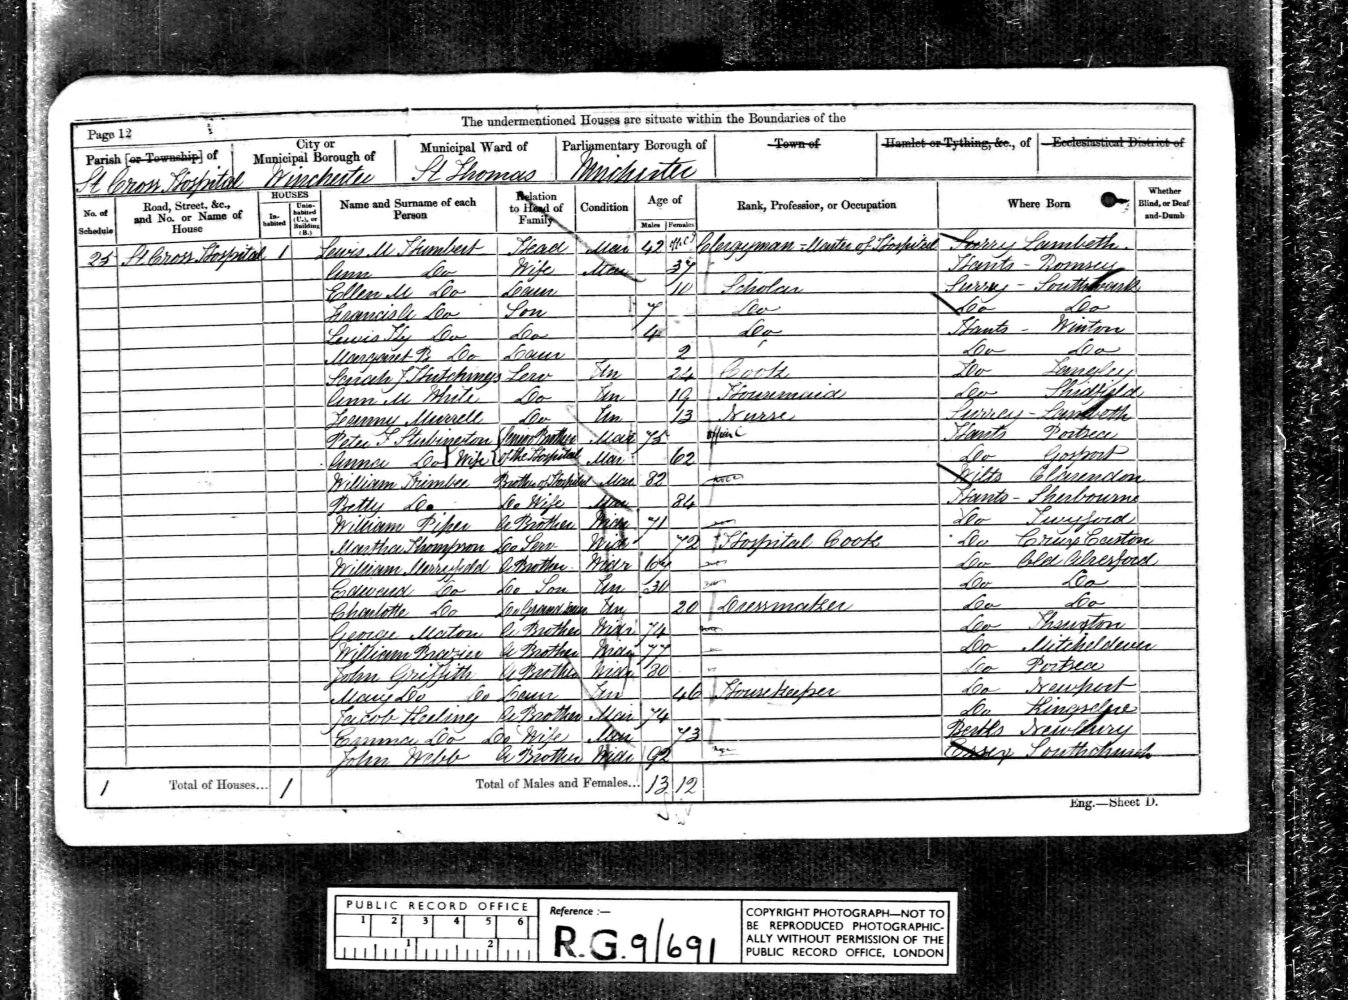 The undermentioned Houses are situate within the Boundaries of the
Page 12
Parish [or Township] of City or Municipal Borough of Municipal Ward of Parliamentary Borough of Town of Hamlet or Tything, &c., of Ecclesiastical District of
St Cross Hospital Winchester St Thomas Winchester
No. of Schedule Road, Street, &c., and No. or Name of House HOUSES Inhabited Uninhabited (U.), or Building (B.) Name and Surname of each Person Relation to Head of Family Condition Age of Males Females Rank, Profession, or Occupation Where Born Whether Blind, or Deaf-and-Dumb
25 St Cross Hospital 1 Lewis M Humbert Head Mar 42 Clergyman = Master of Hospital Surry Lambeth
Ann Do Wife Mar 37 Hants - Romsey
Ellen M Do Daur 10 Scholar Surry - Southwark
Francis Do Son 7 Do Do Do
Lewis Hy Do Do 4 Do Hants - Winton
Margaret B Do Daur 2 Do Do
Sarah J Hutchings Serv Un 24 Cook Do Langley
Ann M White Do Un 19 Housemaid Do Shidfield
Fanny Murrell Do Un 13 Nurse Surrey - Lambeth
Peter F Stubington Senior Brother Mar 75 Hants Portsea
Anna Do Wife of the Hospital Mar 62 Do Gosport
William Trimbee Brother of Hospital Mar 82 Wilts Clarendon
Betty Do Do Wife Mar 84 Hants - Sherbourne
William Piper A Brother Widr 71 Do Twyford
Martha Thompson Do Serv Wid 72 Hospital Cook Do Crux Easton
William Merryfield A Brother Widr Do Old Alresford
Edward Do Do Son Un 30 Do Do
Charlotte Do Do Grand Daur Un 20 Dressmaker Do Do
George Maton A Brother Widr 74 Do Thruxton
William Brazier A Brother Widr 77 Do Mitcheldever
John Griffith A Brother Widr 80 Do Portsea
Mary Do Do Daur Un 46 Housekeeper Do Newport
Jacob Heeling A Brother Mar 74 Do Kingsclere
Emma Do Do Wife Mar 73 Berks Newbury
John Webb A Brother Widr 92 Essex Southchurch
1 Total of Houses... 1 Total of Males and Females... 13 12
Eng.—Sheet D.
PUBLIC RECORD OFFICE
1 2 3 4 5 6
1 2
Reference :—
R.G. 9/691
COPYRIGHT PHOTOGRAPH—NOT TO
BE REPRODUCED PHOTOGRAPHIC-
ALLY WITHOUT PERMISSION OF THE
PUBLIC RECORD OFFICE, LONDON